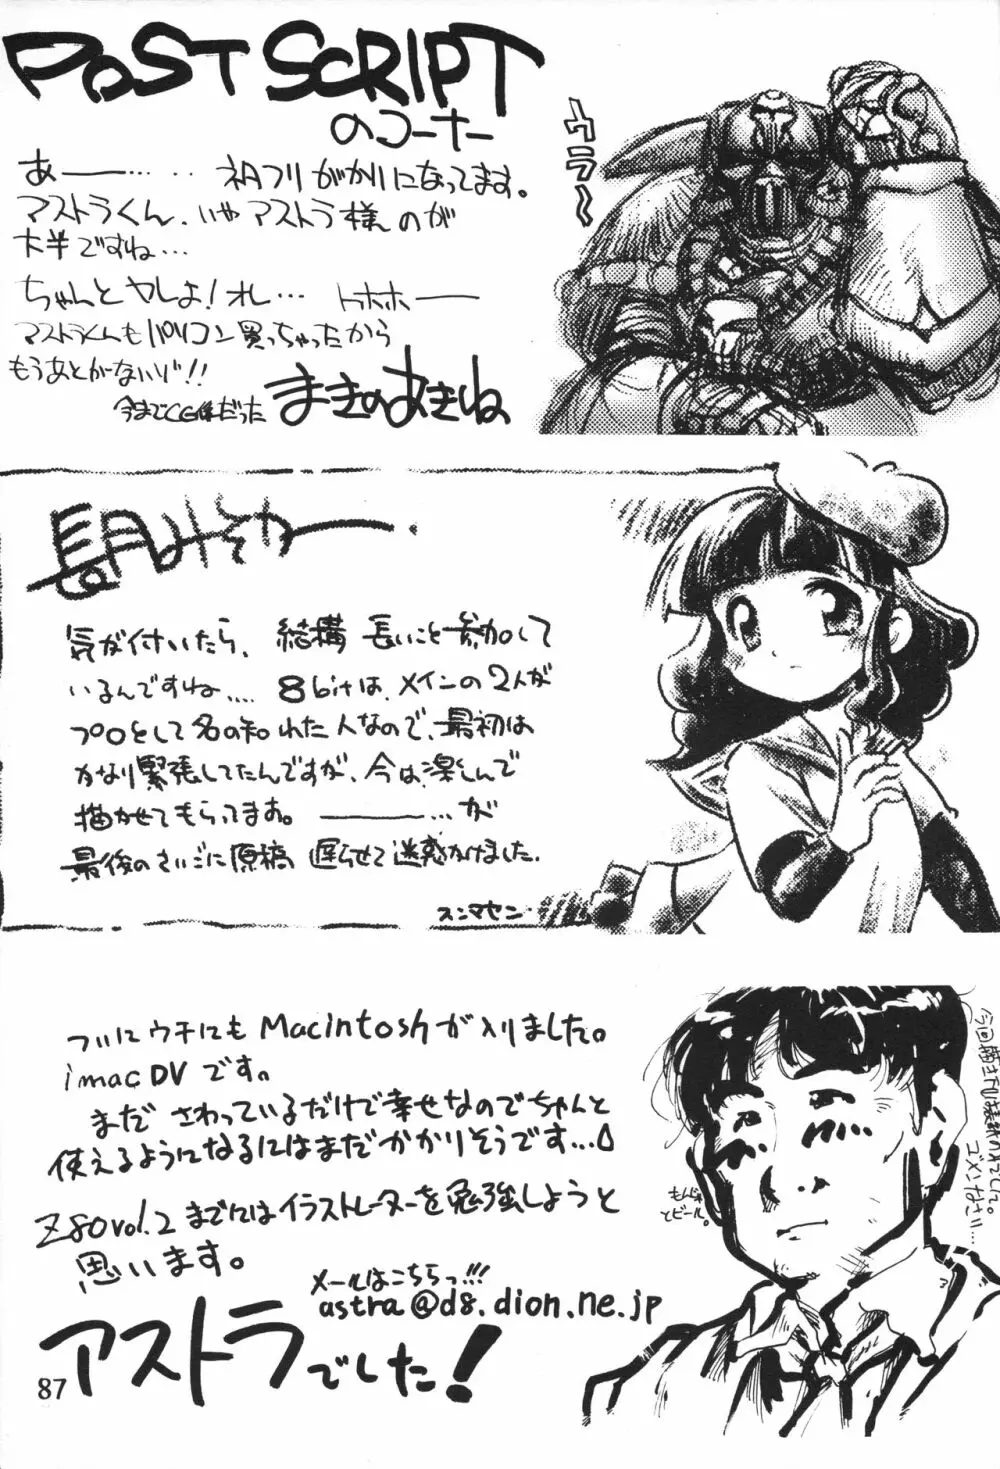 POST SCRIPT
のコーナー
ウラ〜
あ——…‥ 初フリがかりになってます。
マストラくん、いやアストラ様のが
大半ですね…
ちゃんとヤレよ!オレ… トホホ——
マストラくんもパソコン買っちゃったから
もうあとがないゾ!!
今までCG係だった
まきのあきね
長月みそか——.
気が付いたら、結構長いこと参加して
いるんですね.... 8bitは、メインの2人が
プロとして名の知れた人なので、最初は
かなり緊張してたんですが、今は楽しんで
描かせてもらってます。———…が
最後のさいごに原稿遅らせて迷惑かけました.
スンマセン
ついにウチにもMacintoshが入りました。
imac DVです。
まださわっているだけで幸せなのでちゃんと
使えるようになるにはまだかかりそうです…
Z80vol.2までにはイラストレーターを勉強しようと
思います。
メールはこちらっ!!!
astra@d8.dion.ne.jp
アストラでした!
もんじゃ
とビール。
ゴメンなさい…
87